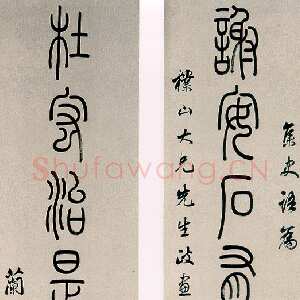 集史語為
謝安石有
山大兄先生政畫
杜宏治是
蘭
Shufawang.cn